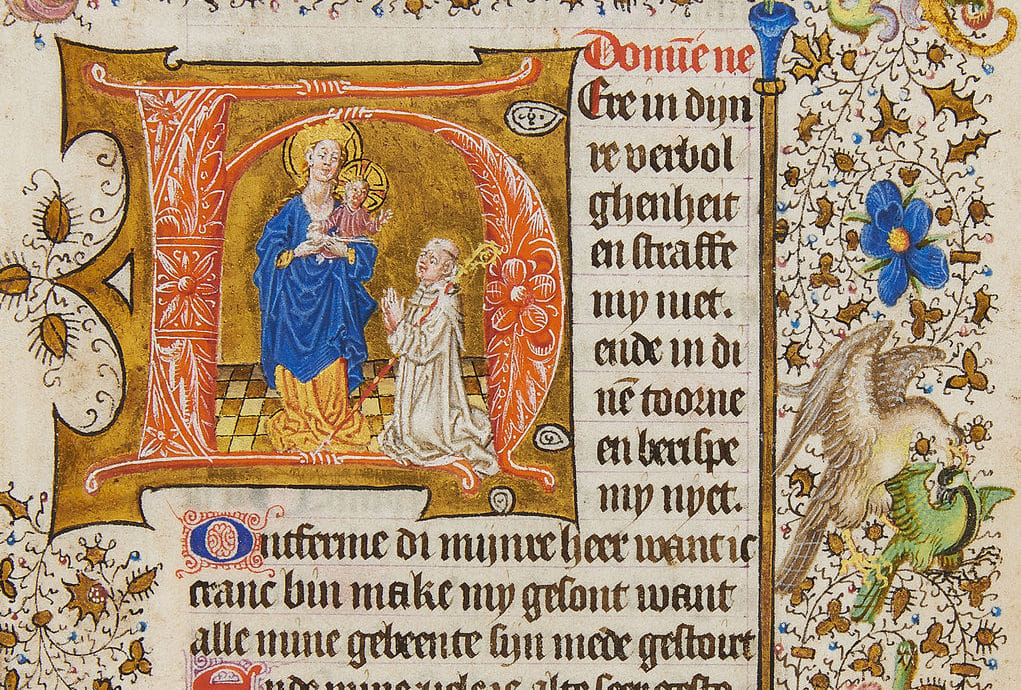 Domīe ne
HEre in dijn
re verbol
ghenheit
en straffe
my niet.
ende in di
nē toorne
en berispe
my nyet.
Ontferme di mijnre heer want ic
cranc bin make my gesont want
alle mine gebeente sijn mede gestoert
Ende mine alte seer